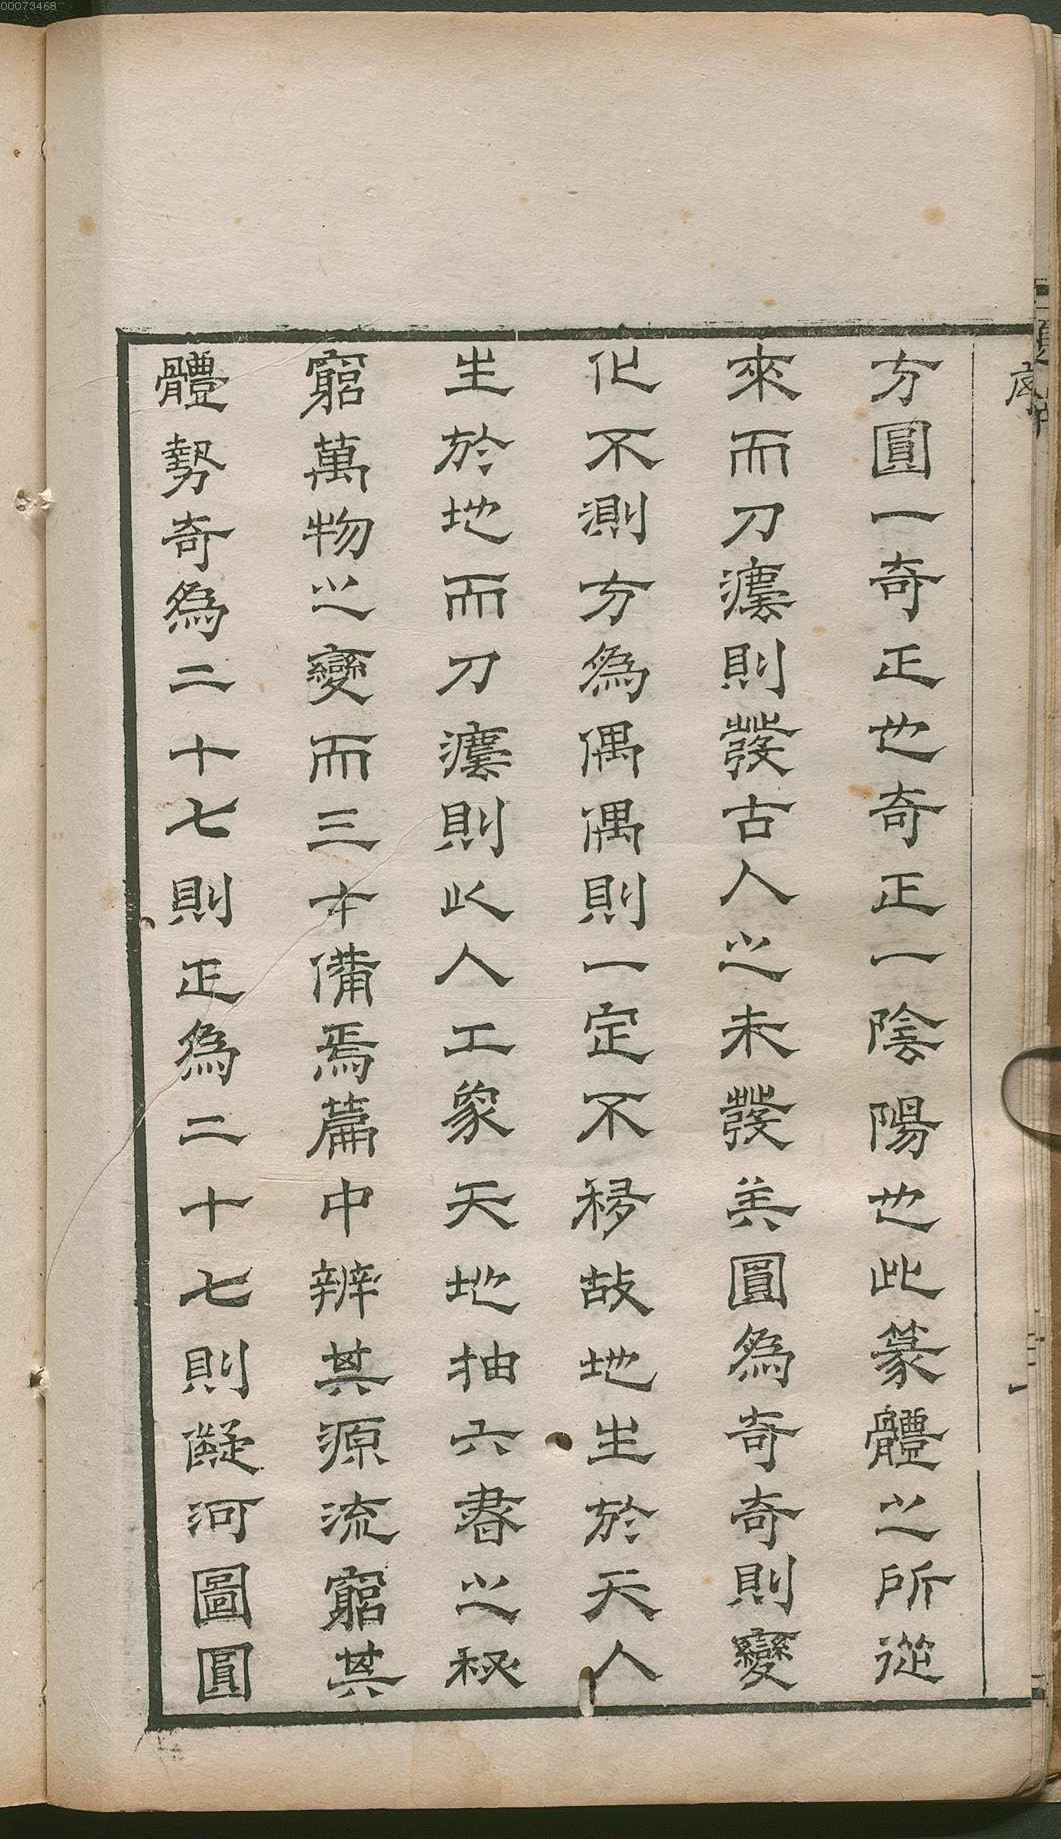 00073468
序
方圓一奇正也奇正一陰陽也此篆體之所從
來而刀瘻則發古人之未發矣圓為奇奇則變
化不測方為偶偶則一定不移故地生於天人
生於地而刀瘻則以人工象天地抽六書之秘
窮萬物之變而三才備焉篇中辨其源流窮其
體勢奇為二十七則正為二十七則儗河圖圓